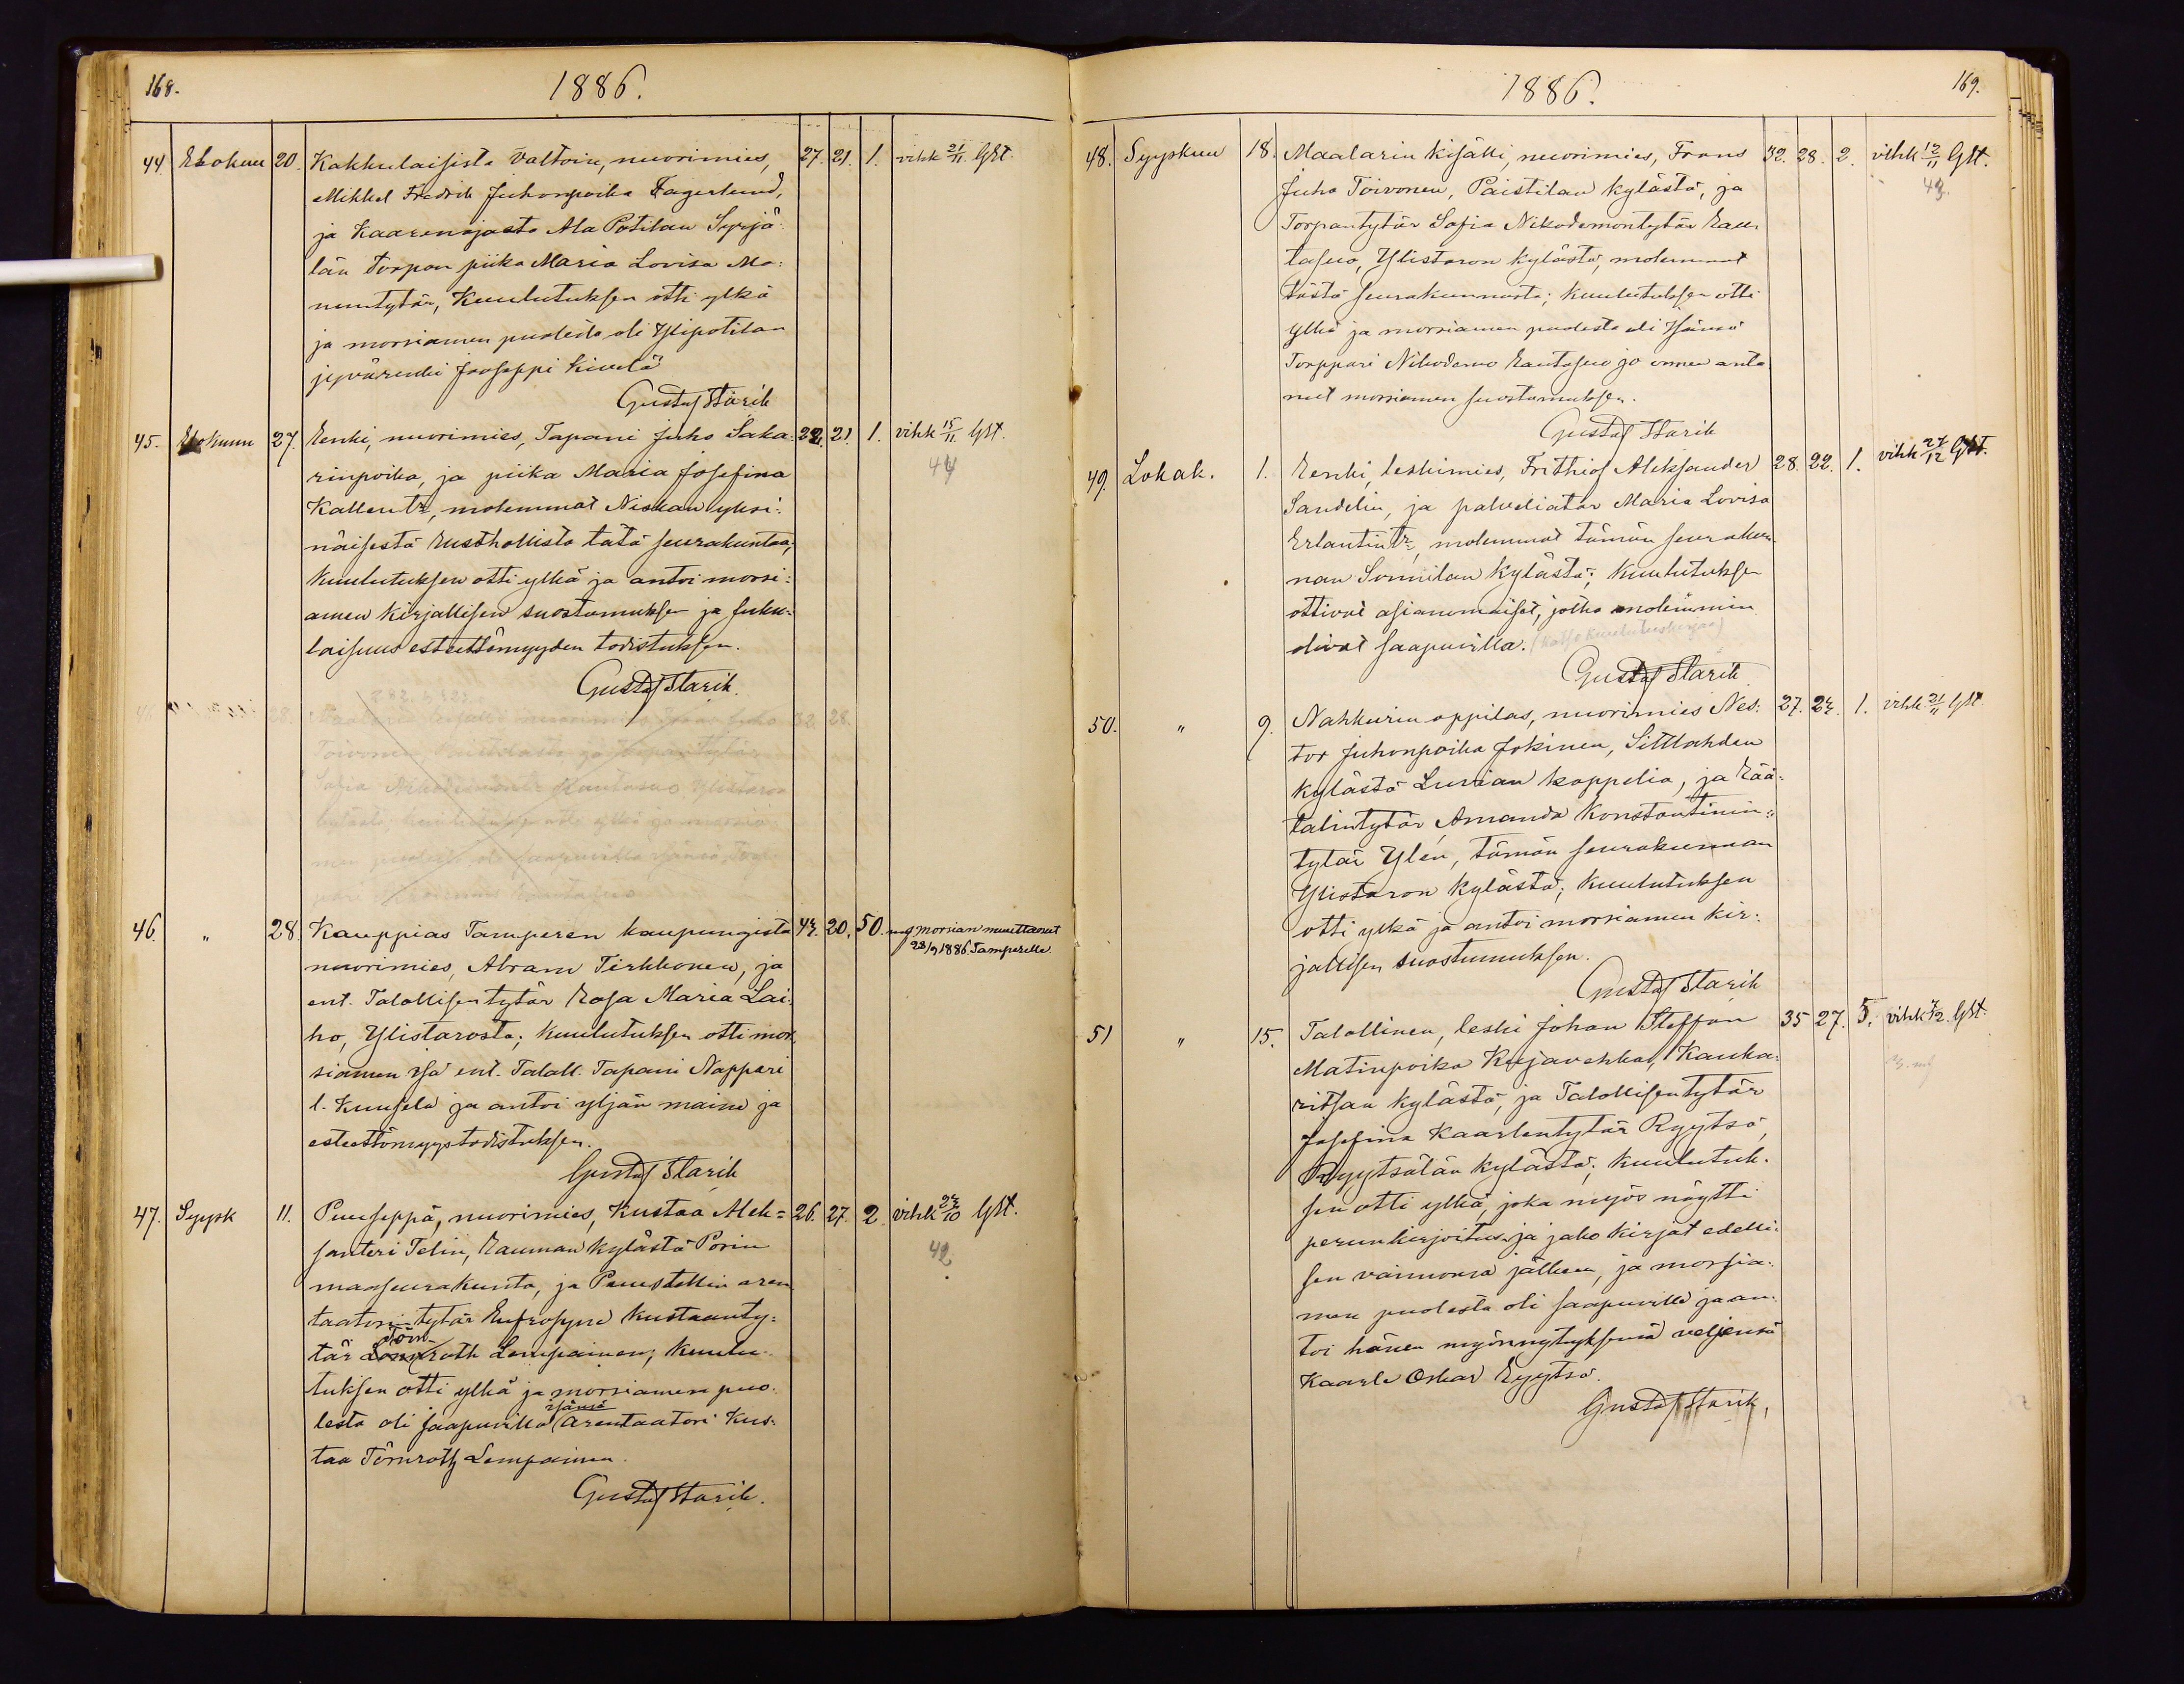 168.
1886.
44 Elokuu 20. Kakkulaisista Valtoin, nuorimies, 27. 21. 1. vihk 21/11 GSt.
Mikkel Fredrik Juhonpoika Fagerlund,
ja Kaarenojasta Ala Potilan Syrjä-
län torpan piika Maria Lovisa Ma-
nuntytär, Kuulutuksen otti ylkä
ja morsiamen puolesta oli Ylipotilan
jyvärenki Jooseppi Kivelä
Gustaf Starik
45. Elokuun 27. Renki, nuorimies, Tapani Juho Saka- 22. 21. 1. vihk 15/11 GSt.
rinpoika, ja piika Maria Josefina
44
Kallentr, molemmat Niskan yksi-
näisestä Rusthollista tätä seurakuntaa;
Kuulutuksen otti ylkä ja antoi morsi-
amen Kirjallisen suostumuksen ja suku-
laisuus esteettömyyden todistuksen.
Gustaf Starik.
28. nuorimies Juho 32. 28.
Toivonen, ja torpantytär
Sofia Nikodemont. Rautasuo Ylistaron
kylästä; ylkä ja morsia-
men puolesta oli saapuvilla isänsä, Torp-
pari Nikodemus Rautasuo
46. " 28. Kauppias Tamperen kaupungista 42. 20. 50. morsian muuttanut
23/9 1886 Tamperelle.
nuorimies, Abram Tirkkonen, ja
ent. Talollisen tytär Rosa Maria Lai-
ho, Ylistarosta; Kuulutuksen otti mor-
siamen isä ent. Talall. Tapani Nappari
l. Kuusela ja antoi yljän maine ja
esteettömyystodistuksen.
Gustaf Starik
47. Syysk 11. Puuseppä, nuorimies, Kustaa Alek- 26. 27. 2 vihk 24/10 GSt.
santeri Telin, Rauman kylästä Porin
42.
maaseurakunta, ja Puustellin aren
taatori-tytär Eufrosyne Kustaanty-
Törn-
tär Lönnroth Lempainen; Kuulu-
tuksen otti ylkä ja morsiamen puo-
isänsä
lesta oli saapuvilla arentaatori Kus-
taa Törnroth Lempainen.
Gustaf Starik.
1886.
169.
48. Syyskuu 18. Maalarin kisälli, nuorimies, Frans 32. 28. 2. vihk 12/11 GSt.
43.
Juho Toivonen, Paistilan kylästä, ja
Torpantytär Sofia Nikodemontytär Rau-
tasuo, Ylistaron kylästä, molemmat
tästä seurakunnasta; kuulutuksen otti
ylkä ja morsiamen puolesta oli isänsä
Torppari Nikodemo Rautasuo jo ennen anta
nut morsiamen suostumuksen.
Gustaf Starik
49. Lokak. 1. Renki, leskimies, Frithiof Aleksander 28. 22. 1. vihk 27/12 GSt.
Sandelin, ja palveliatar Maria Lovisa
Erlantintr, molemmat tämän seurakun-
nan Sonnilan kylästä; Kuulutuksen
ottivat asianomaiset, jotka molemmin
olivat saapuvilla. (Katso kuulutuskirjaa)
Gustaf Starik
50. " 9. Nahkurin oppilas, nuorimies Nes- 27. 24. 1. vihk. 21/11 GSt.
tor Juhonpoika Jokinen, Sittlahden
kylästä Luvian kappelia, ja Rää-
talintytär Amanda Konstantinin-
tytär Ylén, tämän seurakunnan
Ylistaron kylästä; Kuulutuksen
otti ylkä ja antoi morsiamen kir-
jallisen suostumuksen.
Gustaf Starik
51 " 15. Talollinen, leski Johan Steffan 35 27. 5. vihk 7/12. GSt.
Matinpoika Kujavehka, Kauka-
ritsan kylästä, ja Talollisentytär
Josefina Kaarlentytär Ryytsä,
Ryytsälän kylästä; Kuulutuk-
sen otti ylkä, joka myös näytti
perunkirjoitus- ja jako kirjat edelli-
sen vaimonsa jälkeen, ja morsia-
men puolesta oli saapuvilla ja an-
toi hänen myönnytyksensä veljensä
Kaarle Oskar Ryytsä.
Gustaf Starik,